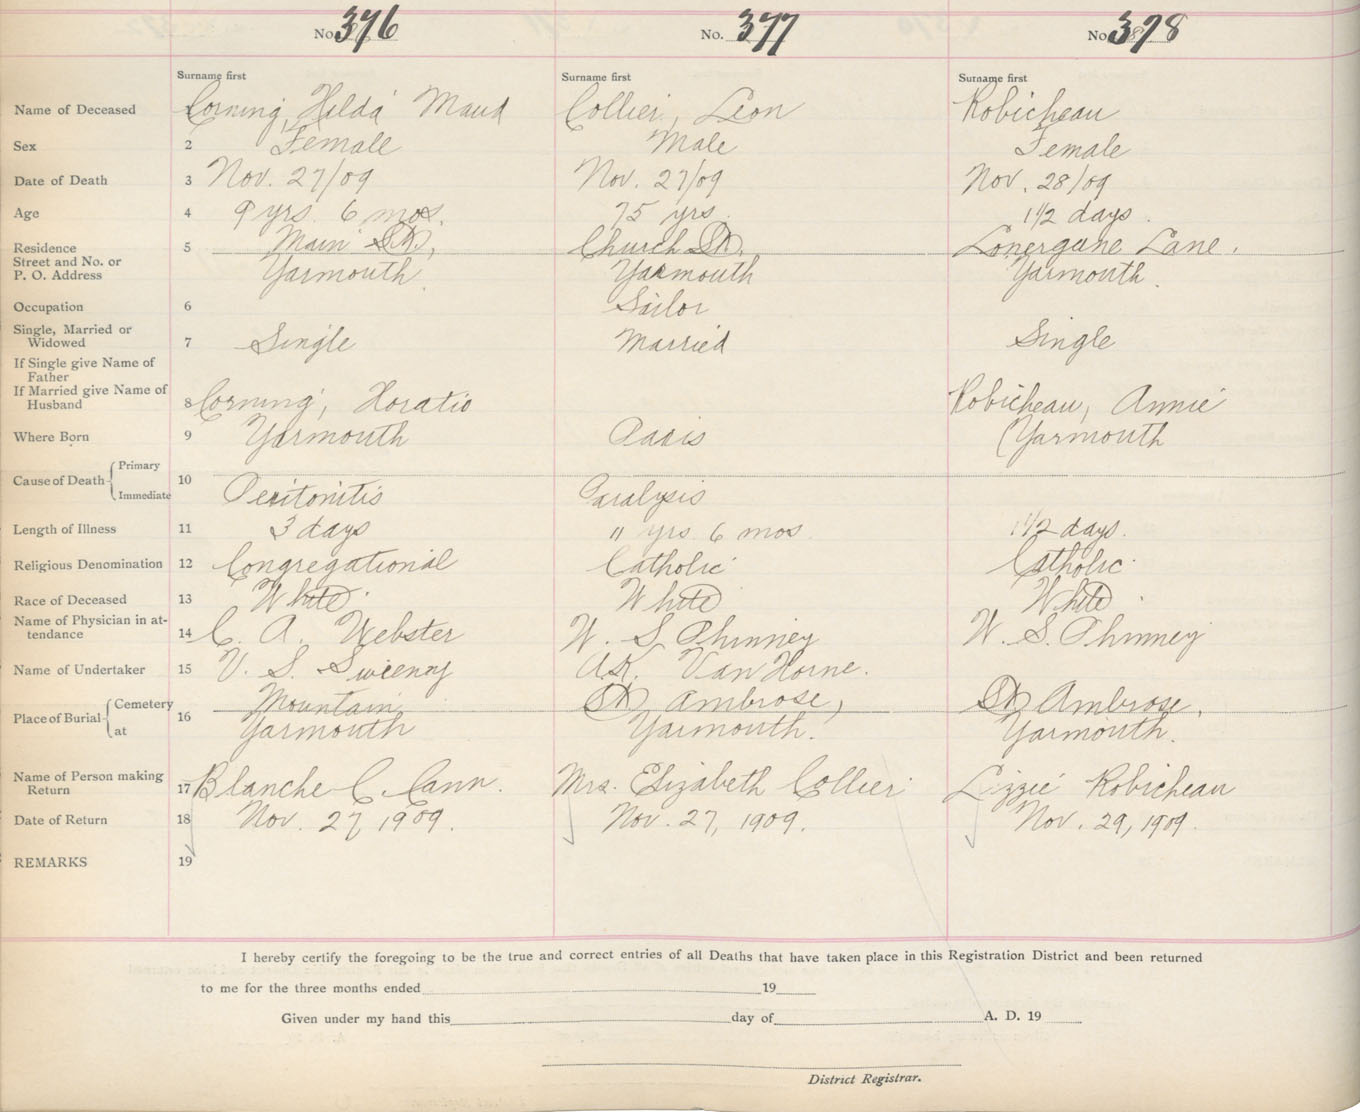 No. 376 No. 377 No. 378
Surname first Surname first Surname first
Name of Deceased Corning, Hilda Maud Collier, Leon Robicheau
Sex 2 Female Male Female
Date of Death 3 Nov. 27/09 Nov. 27/09 Nov. 28/09
Age 4 9 yrs 6 mos. 75 yrs. 1 1/2 days.
Residence 5 Main St, Church St, Lonergane Lane,
Street and No. or
P. O. Address Yarmouth. Yarmouth Yarmouth.
Occupation 6 Sailor
Single, Married or
Widowed 7 Single Married Single
If Single give Name of
Father
If Married give Name of
Husband 8 Corning, Horatio Robicheau, Annie
Where Born 9 Yarmouth Paris Yarmouth
Cause of Death Primary
10
Immediate Peritonitis Paralysis
Length of Illness 11 3 days " yrs 6 mos 1 1/2 days.
Religious Denomination 12 Congregational Catholic Catholic
Race of Deceased 13 White. White White.
Name of Physician in at-
tendance 14 C. A. Webster W. S. Phinney W. S. Phinney
Name of Undertaker 15 V. S. Sweeny A.K. Van Horne.
Place of Burial Cemetery 16 Mountain St Ambrose, St Ambrose,
at Yarmouth Yarmouth. Yarmouth.
Name of Person making
Return 17 Blanche C. Cann. Mrs. Elizabeth Collier Lizzie Robicheau
Date of Return 18 Nov. 27, 1909. Nov. 27, 1909. Nov. 29, 1909.
REMARKS 19
I hereby certify the foregoing to be the true and correct entries of all Deaths that have taken place in this Registration District and been returned
to me for the three months ended 19
Given under my hand this day of A. D. 19
District Registrar.